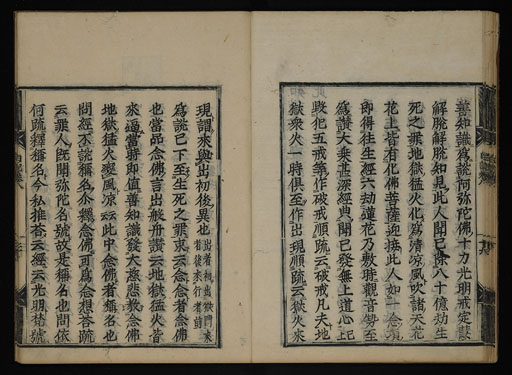 善知識爲説阿弥陀佛十力光明戒定慧
解脱解脱知見此人聞已除八十億劫生
死之罪地獄猛火化爲清凉風吹諸天花
花上皆有化佛菩薩迎接此人如一念頃
即得往生經六劫蓮花乃敷時觀音勢至
爲讃大乗甚深經典聞已發無上道心已上
毀犯五戒等作破戒順䟽云破戒凡夫地
獄衆火一時俱至作出現順䟽云獄火來
現謂來與出初後異也
爲説已下至生死之罪末云念者念佛
也當品念佛言出般舟讃云地獄猛火皆
來逼當時即値善知識發大慈悲教念佛
地獄猛火變風凉云云此中念佛者稱名也
問經不説稱名介釋念佛可爲念想答䟽
云罪人既聞弥陀名號故是稱名也問依
何䟽釋稱名今私推荅云經云光明